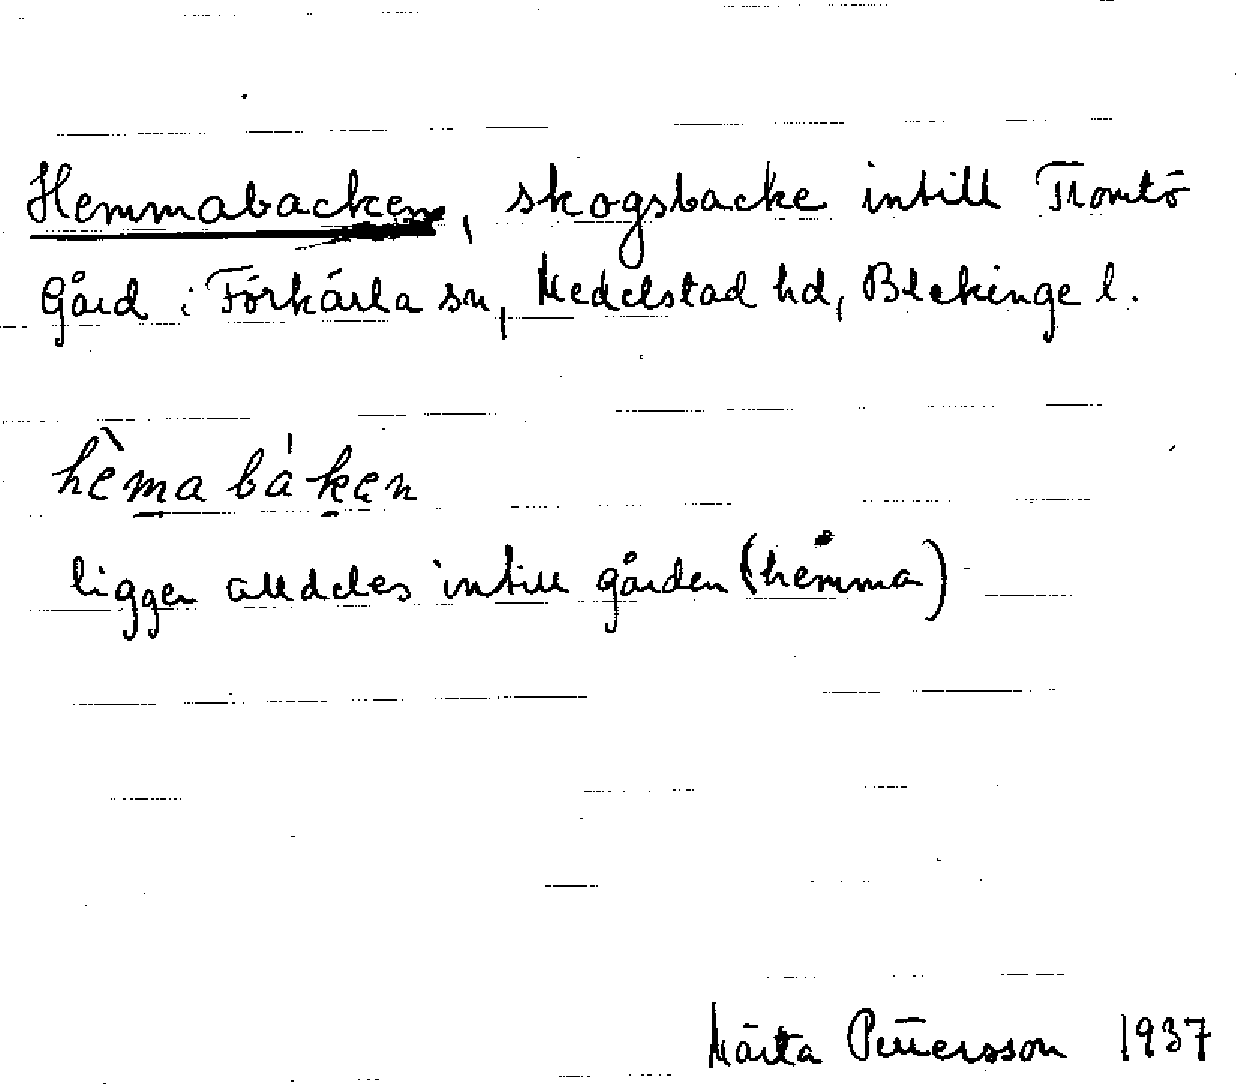 Hemmabacken, skogsbacke intill Tromtö
Gård i Förkärla sn, Medelstad hd, Blekinge l.
hèma bá ken
ligger alldeles intill gården (hemma)
Märta Pettersson 1937